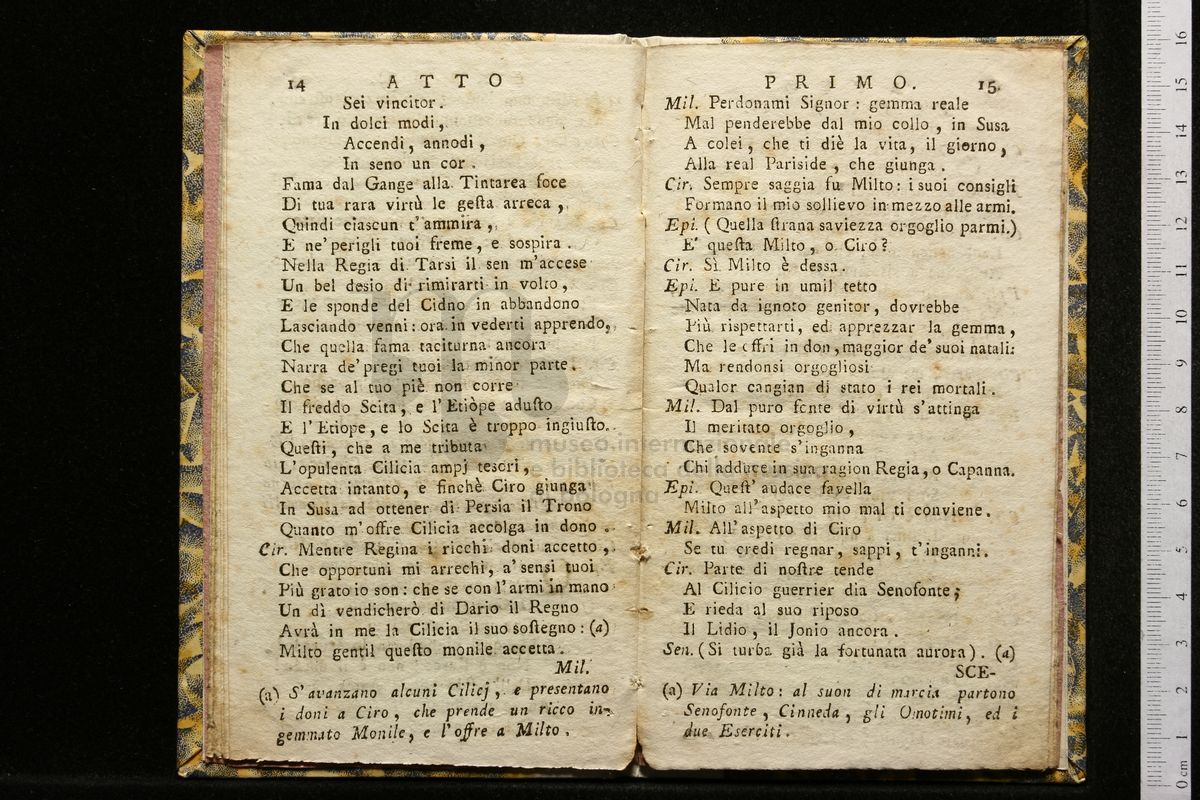 14 ATTO
Sei vincitor.
In dolci modi,
Accendi, annodi,
In seno un cor.
Fama dal Gange alla Tintarea foce
Di tua rara virtù le gesta arreca,
Quindi ciascun t'ammira,
E ne' perigli tuoi freme, e sospira.
Nella Regia di Tarsi il sen m'accese
Un bel desio di rimirarti in volto,
E le sponde del Cidno in abbandono
Lasciando venni: ora in vederti apprendo,
Che quella fama taciturna ancora
Narra de' pregi tuoi la minor parte.
Che se al tuo piè non corre
Il freddo Scita, e l'Etiòpe adusto
E l'Etiope, e lo Scita è troppo ingiusto.
Questi, che a me tributa
L'opulenta Cilicia ampj tesori,
Accetta intanto, e finchè Ciro giunga
In Susa ad ottener di Persia il Trono
Quanto m'offre Cilicia accolga in dono.
Cir. Mentre Regina i ricchi doni accetto,
Che opportuni mi arrechi, a' sensi tuoi
Più grato io son: che se con l'armi in mano
Un dì vendicherò di Dario il Regno
Avrà in me la Cilicia il suo sostegno: (a)
Milto gentil questo monile accetta.
Mil.
(a) S'avanzano alcuni Cilicj, e presentano
i doni a Ciro, che prende un ricco in-
gemmato Monile, e l'offre a Milto.
PRIMO. 15.
Mil. Perdonami Signor: gemma reale
Mal penderebbe dal mio collo, in Susa
A colei, che ti diè la vita, il giorno,
Alla real Pariside, che giunga.
Cir. Sempre saggia fu Milto: i suoi consigli
Formano il mio sollievo in mezzo alle armi.
Epi. (Quella strana saviezza orgoglio parmi.)
E' questa Milto, o Ciro?
Cir. Sì Milto è dessa.
Epi. E pure in umil tetto
Nata da ignoto genitor, dovrebbe
Più rispettarti, ed apprezzar la gemma,
Che le offri in don, maggior de' suoi natali:
Ma rendonsi orgogliosi
Qualor cangian di stato i rei mortali.
Mil. Dal puro fonte di virtù s'attinga
Il meritato orgoglio,
Che sovente s'inganna
Chi adduce in sua ragion Regia, o Capanna.
Epi. Quest' audace favella
Milto all'aspetto mio mal ti conviene.
Mil. All'aspetto di Ciro
Se tu credi regnar, sappi, t'inganni.
Cir. Parte di nostre tende
Al Cilicio guerrier dia Senofonte;
E rieda al suo riposo
Il Lidio, il Jonio ancora.
Sen. (Si turba già la fortunata aurora). (a)
SCE-
(a) Via Milto: al suon di marcia partono
Senofonte, Cinneda, gli Omotimi, ed i
due Eserciti.
museo internazionale
e biblioteca della
bologna
0 cm 1 2 3 4 5 6 7 8 9 10 11 12 13 14 15 16